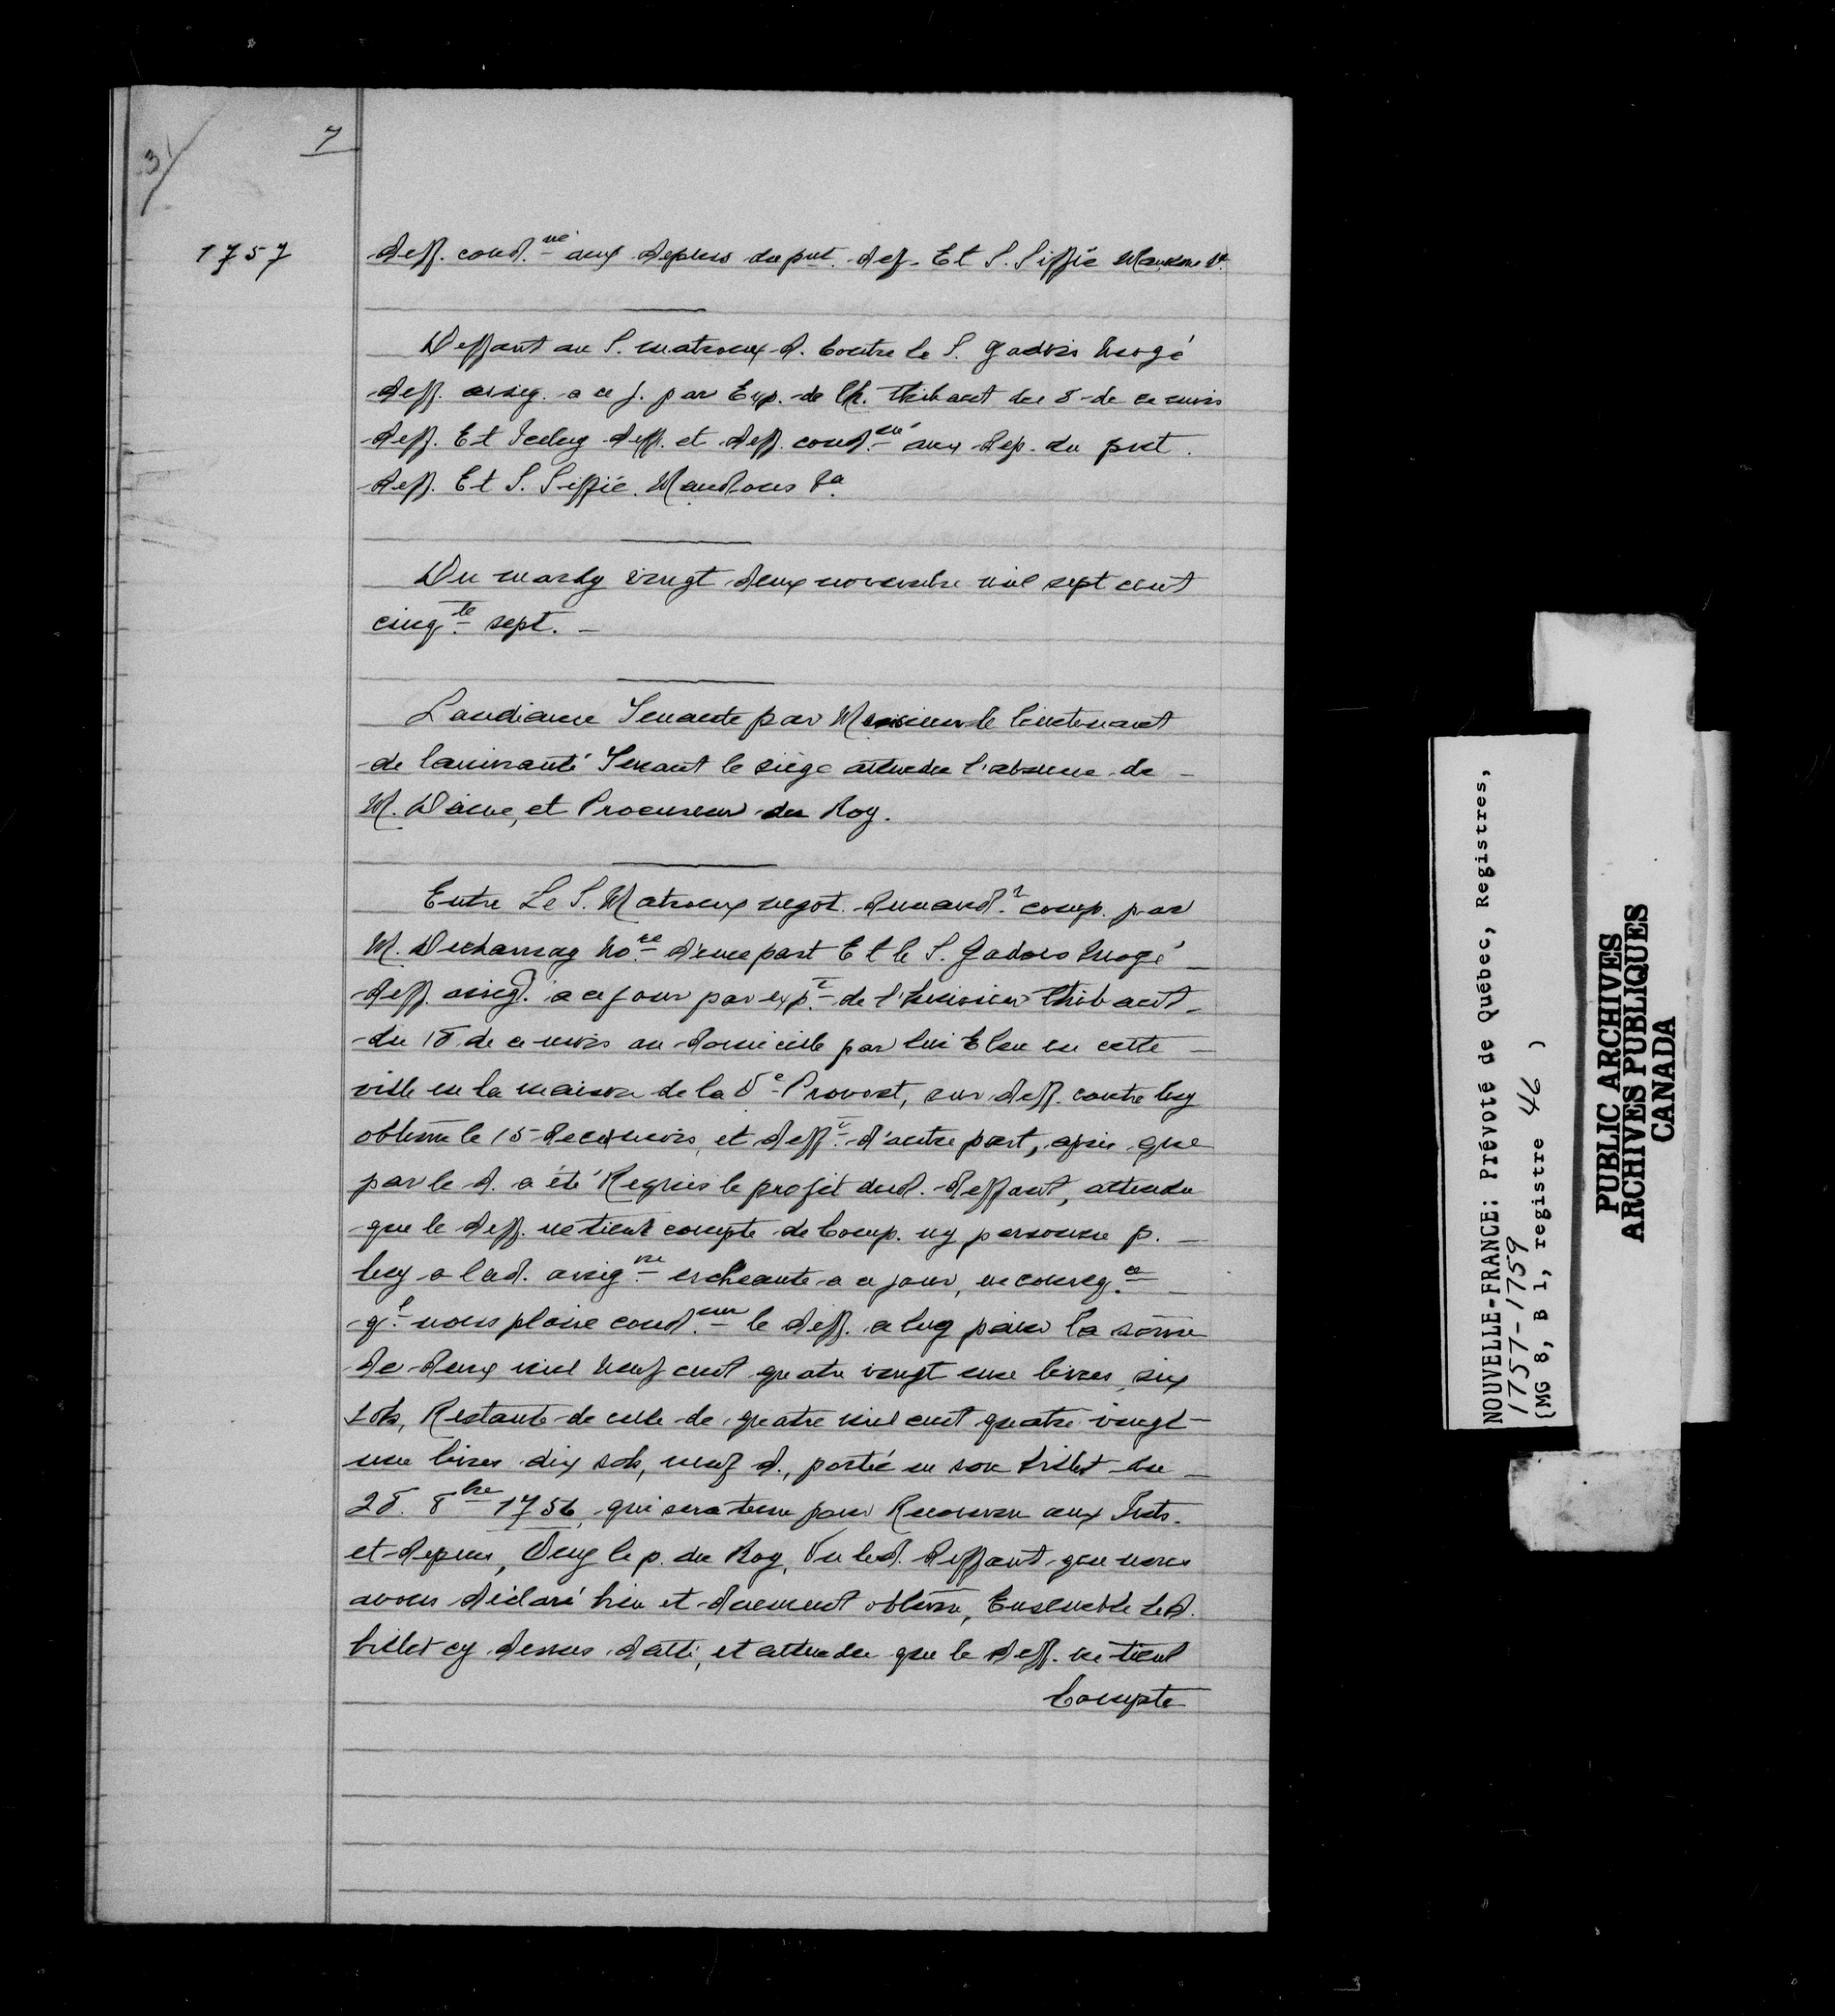 31
7
1757
deff. cond.né aux depens du pnt. def. Et S. Siffié Mandons &a.
Deffaut au S. Matroux d. Contre le S. Gadois Mogé
deff. assig. a ce j. par Exp. de Ch. Thibault du 8 de ce mois
deff. Et Iceluy deff. et deff. cond.né aux dep. du pnt.
deff. Et S. Siffié. Mandons &a
Du mardy vingt deux novembre mil sept cent
cinqte. sept. —
Laudiance Tenante par Monsieur le lieutenant
de lamirauté Tenant le siège attendu l'absence de —
M. Daine, et Procureur du Roy.
Entre Le S. Matroux negot. demand.r comp. par
M. Decharnay no.re d'une part Et le S. Gadois Mogé —
deff. assigé. a ce jour par exp.t de l'huissier Thibault —
du 18 de ce mois au domicile par lui Eleu en cette —
ville en la maison de la Ve Provost, sur deff. contre luy
obtenu le 15 de ce mois, et deff.r d'autre part, aprés que
par le d. a été Requis le profit dud. deffaut, attendu
que le deff. ne tient compte de Comp. ny personne p. —
luy a lad. assig.on escheante a ce jour, en conseq.ce —
q.l nous plaise cond.ner le deff. a luy paier la some
de deux mil neuf cent quatre vingt une livres, six
sols, Restante de celle de quatre mil cent quatre vingt —
une livres dix sols, neuf d., portée en son billet du —
28. 8bre 1756, qui sera tenu pour Reconnu aux Ints.
et depens, Ouy le p. du Roy, Vu led. deffaut que nous
avons déclaré bien et duement obtenu, Ensemble Led.
billet cy dessus datté, et attendu que le deff. ne tient
Compte
NOUVELLE-FRANCE: Prévoté de Québec, Registres,
1757-1759
(MG 8, B 1, registre 46 )
PUBLIC ARCHIVES
ARCHIVES PUBLIQUES
CANADA